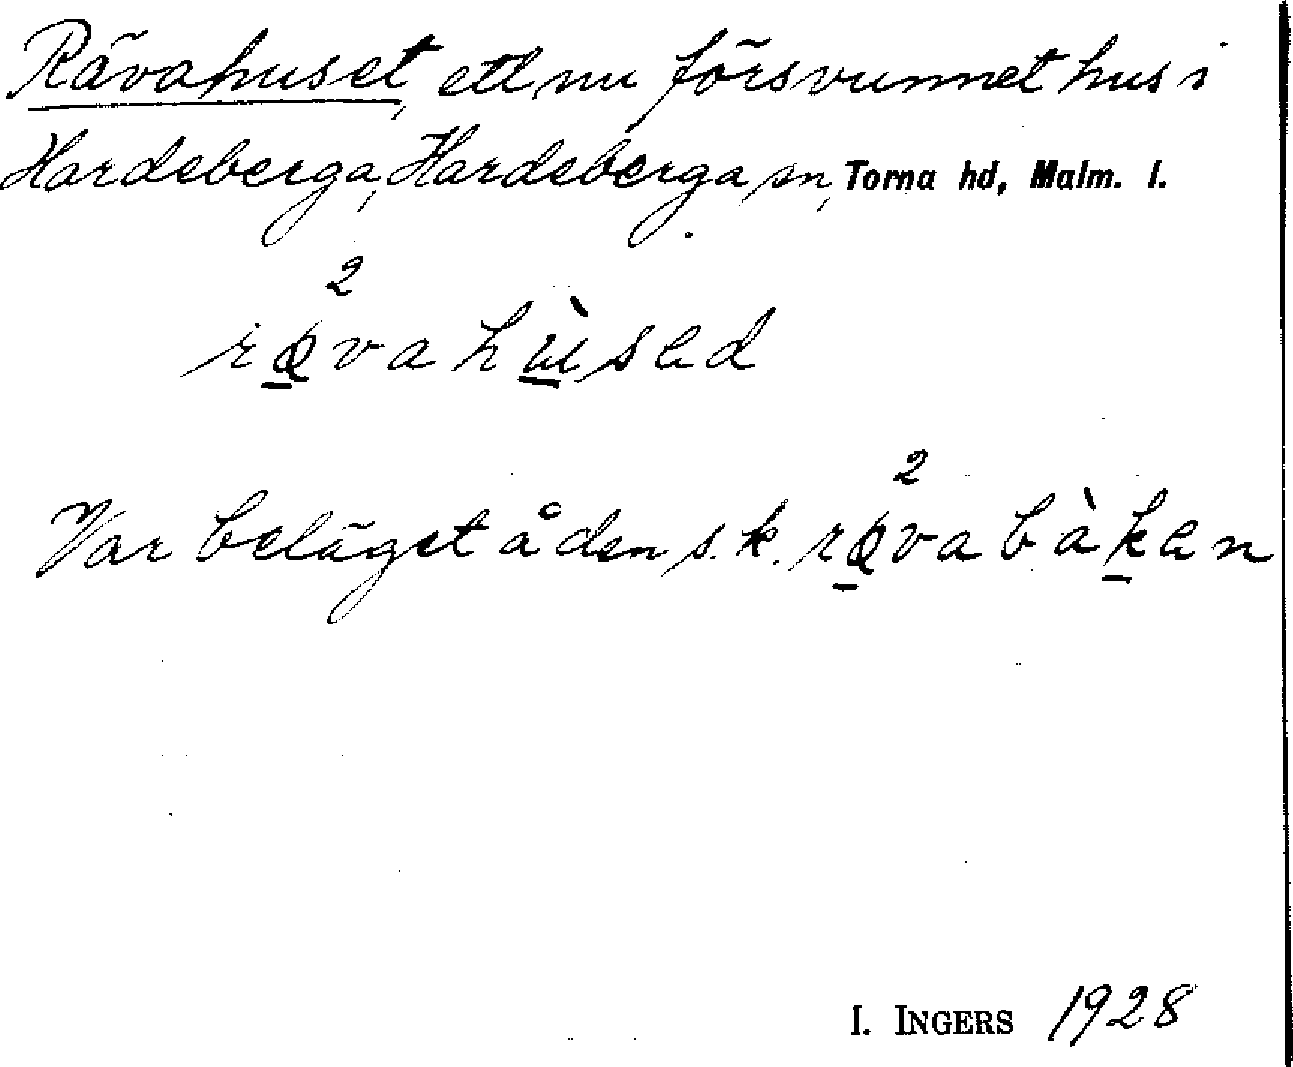 Rävahuset, ett nu försvunnet hus i
Hardeberga, Hardeberga sn, Torna hd, Malm. l.
2
rävahùsed
2
Var beläget å den s.k. rävabàken
I. INGERS 1928